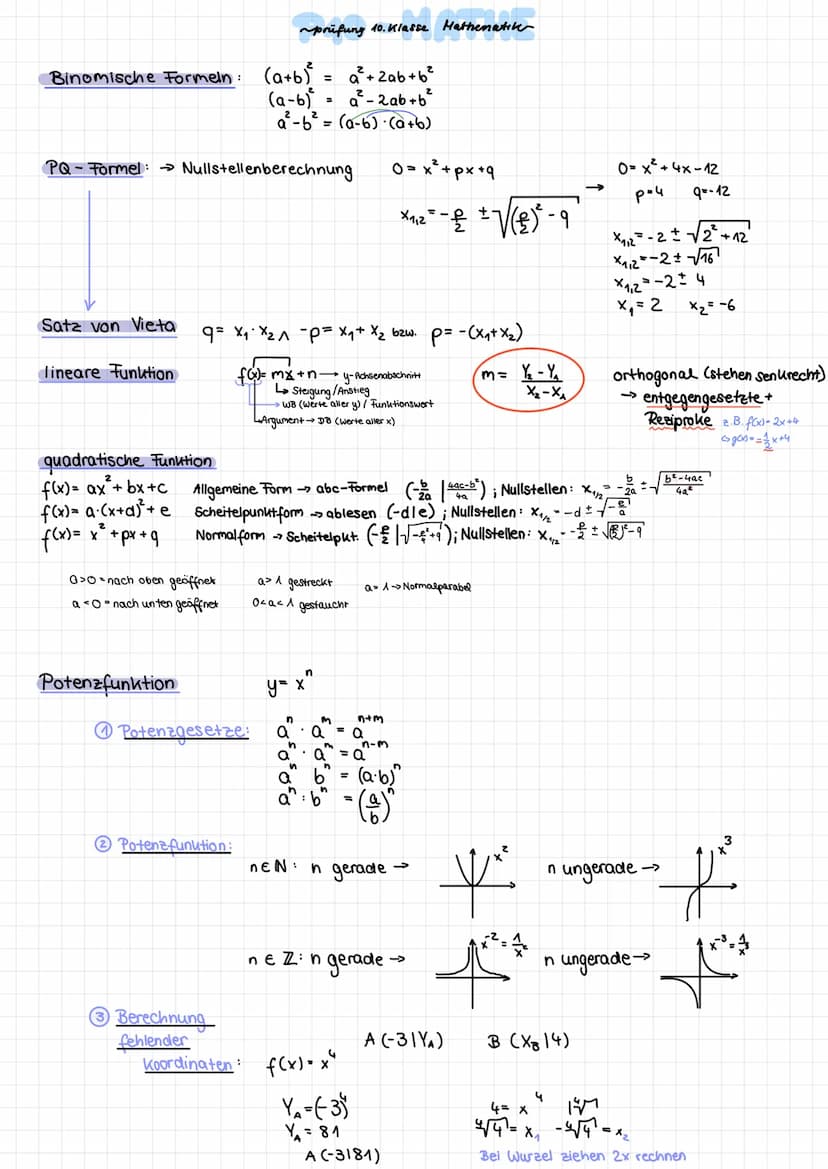 P10 - MATHE
~prüfung 10. Klasse Mathematik~
Binomische Formeln: (a+b)² = a² + 2ab + b²
(a-b)² = a² - 2ab + b²
a² - b² = (a-b) · (a+b)
PQ - Formel: → Nullstellenberechnung 0 = x² + px + q → 0 = x² + 4x - 12
p = 4 q = -12
x₁,₂ = -p/2 ± √((p/2)² - q)
x₁,₂ = -2 ± √(2² + 12)
x₁,₂ = -2 ± √16
x₁,₂ = -2 ± 4
x₁ = 2 x₂ = -6
Satz von Vieta q = x₁ · x₂ ∧ -p = x₁ + x₂ bzw. p = -(x₁ + x₂)
lineare Funktion f(x) = mx + n → y-Achsenabschnitt
↳ Steigung/Anstieg
→ WB (Werte aller y) / Funktionswert
↳ Argument → DB (Werte aller x)
m = (y₂ - y₁)/(x₂ - x₁)
orthogonal (stehen senkrecht)
→ entgegengesetzte +
Reziproke z.B. f(x) = 2x+4
↳ g(x) = -1/2 x+4
quadratische Funktion
f(x) = ax² + bx + c Allgemeine Form → abc-Formel (-b/2a | (4ac-b²)/4a) ; Nullstellen: x₁/₂ = -b/2a ± √((b²-4ac)/4a²)
f(x) = a·(x+d)² + e Scheitelpunktform → ablesen (-d|e) ; Nullstellen: x₁/₂ = -d ± √(-e/a)
f(x) = x² + px + q Normalform → Scheitelpkt. (-p/2 | √(-p²/4+q)) ; Nullstellen: x₁/₂ = -p/2 ± √((p/2)² - q)
a>0 = nach oben geöffnet a>1 gestreckt a=1 → Normalparabel
a<0 = nach unten geöffnet 0<a<1 gestaucht
Potenzfunktion y = xⁿ
① Potenzgesetze: aⁿ · aᵐ = aⁿ⁺ᵐ
aⁿ · aᵐ = aⁿ⁻ᵐ
aⁿ bⁿ = (a·b)ⁿ
aⁿ : bⁿ = (a/b)ⁿ
② Potenzfunktion:
n ∈ ℕ: n gerade → x² n ungerade → x³
n ∈ ℤ: n gerade → x⁻² = 1/x² n ungerade → x⁻³ = 1/x³
③ Berechnung
fehlender
Koordinaten: f(x) = x⁴ A(-3|Yₐ) B(X_B|4)
Yₐ = (-3)⁴
Yₐ = 81
A(-3|81)
4 = x⁴ |⁴√
⁴√4 = x₁ -⁴√4 = x₂
Bei Wurzel ziehen 2x rechnen